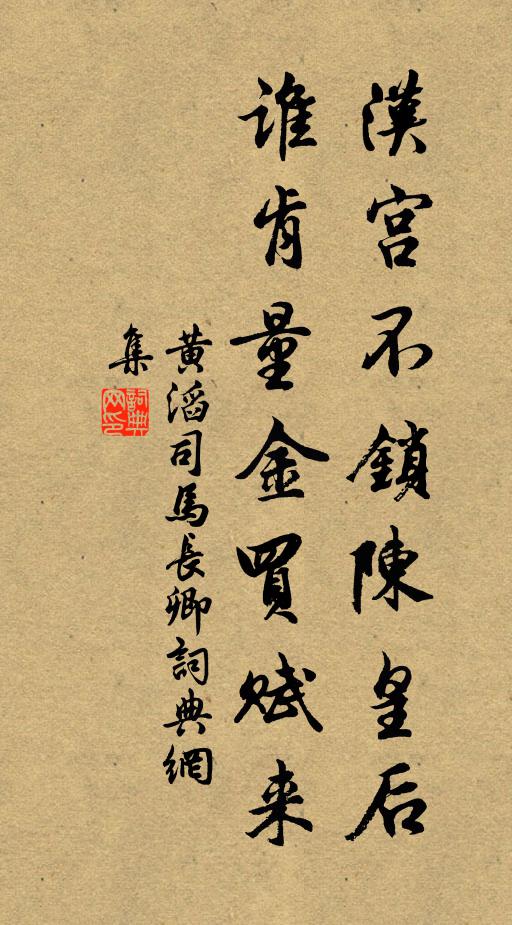 漢宮不鎖陳皇后
誰肯量金買賦来
黃滔司馬長卿詞典網
集
詞典網印